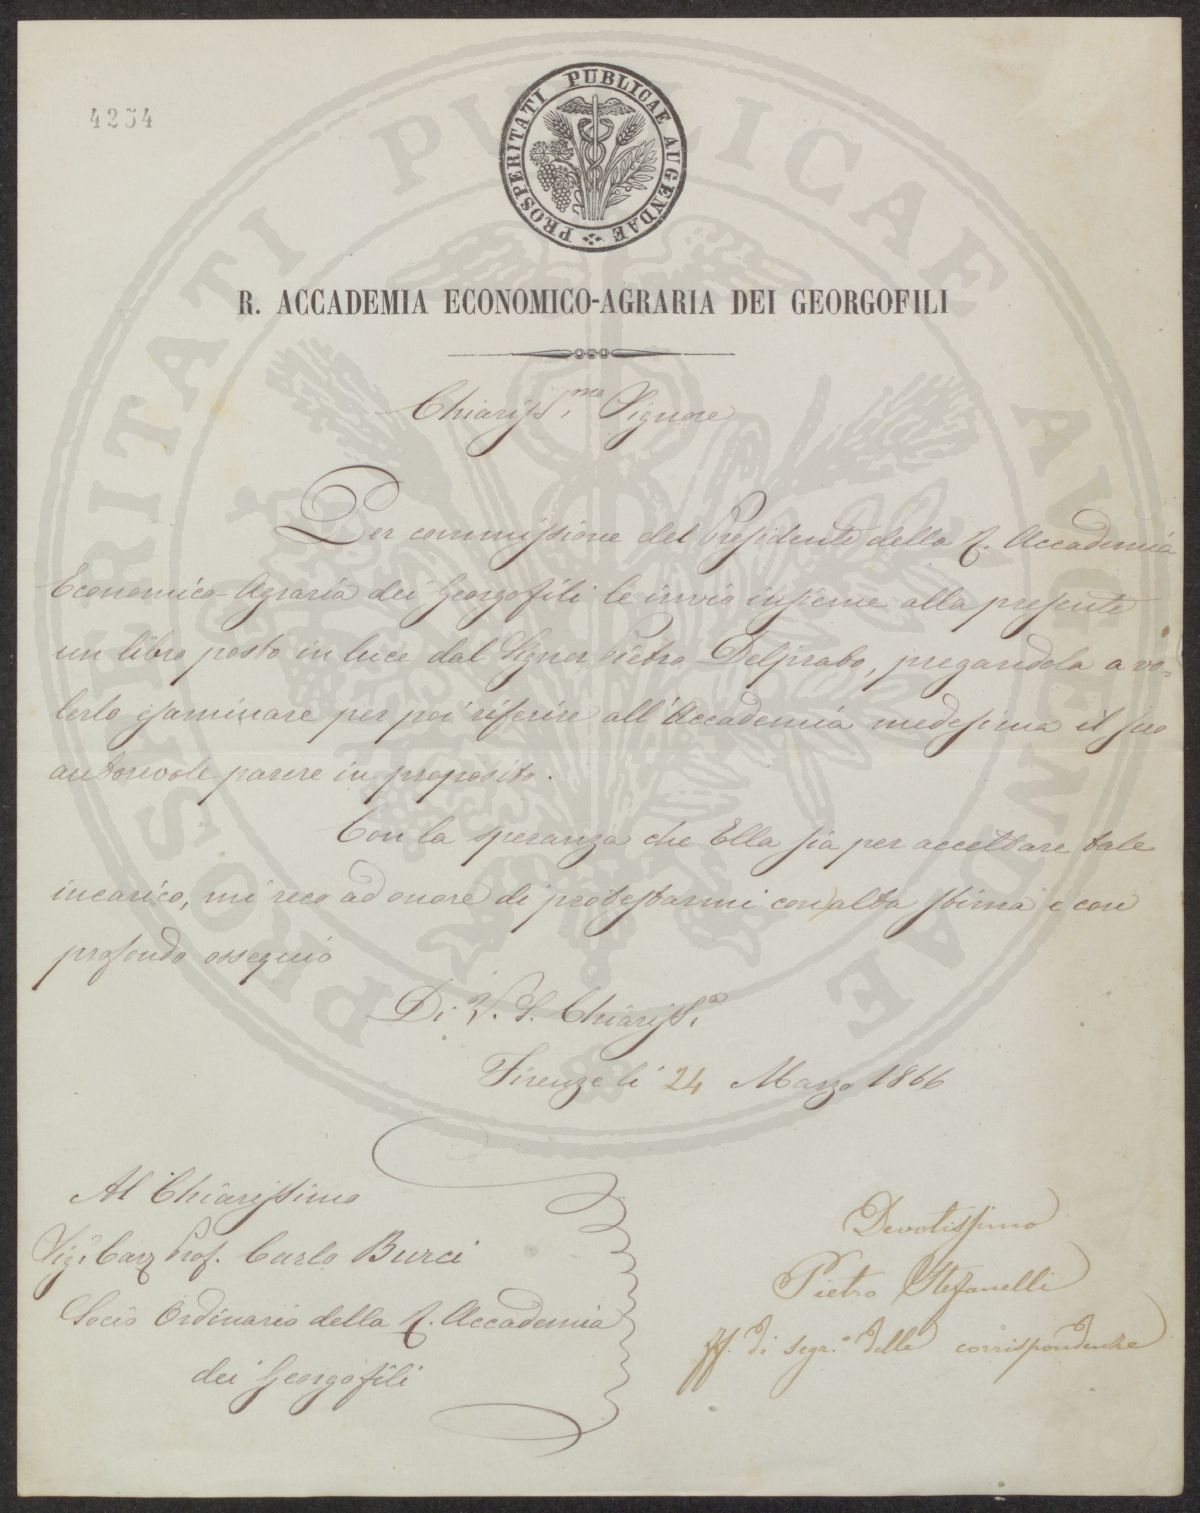 4254
PROSPERITATI PUBLICAE AUGENDAE
R. ACCADEMIA ECONOMICO-AGRARIA DEI GEORGOFILI
Chiariss.mo Signore
Per commissione del Presidente della R. Accademia
Economico-Agraria dei Georgofili le invio insieme alla presente
un libro posto in luce dal Signor Pietro Delprato, pregandola a vo=
lerlo esaminare per poi riferire all'Accademia medesima il suo
autorevole parere in proposito.
Con la speranza che Ella sia per accettare tale
incarico, mi reco ad onore di protestarmi con alta stima e con
profondo ossequio
Di V. S. Chiariss.a
Firenze li 24 Marzo 1866
Al Chiarissimo
Sig. Cav. Prof. Carlo Burci
Socio Ordinario della R. Accademia
dei Georgofili
Devotissimo
Pietro Stefanelli
ff. di segr.o delle corrispondenze
PROSPERITATI PUBLICAE AVGENDAE